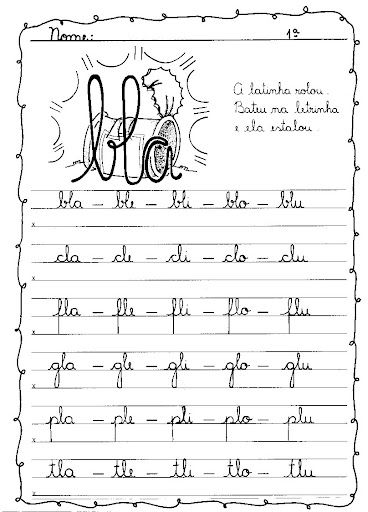 Nome: 1ª
bla
A latinha rolou.
Bateu na letrinha
e ela estalou.
bla – ble – bli – blo – blu
x
cla – cle – cli – clo – clu
x
fla – fle – fli – flo – flu
x
gla – gle – gli – glo – glu
x
pla – ple – pli – plo – plu
x
tla – tle – tli – tlo – tlu
x